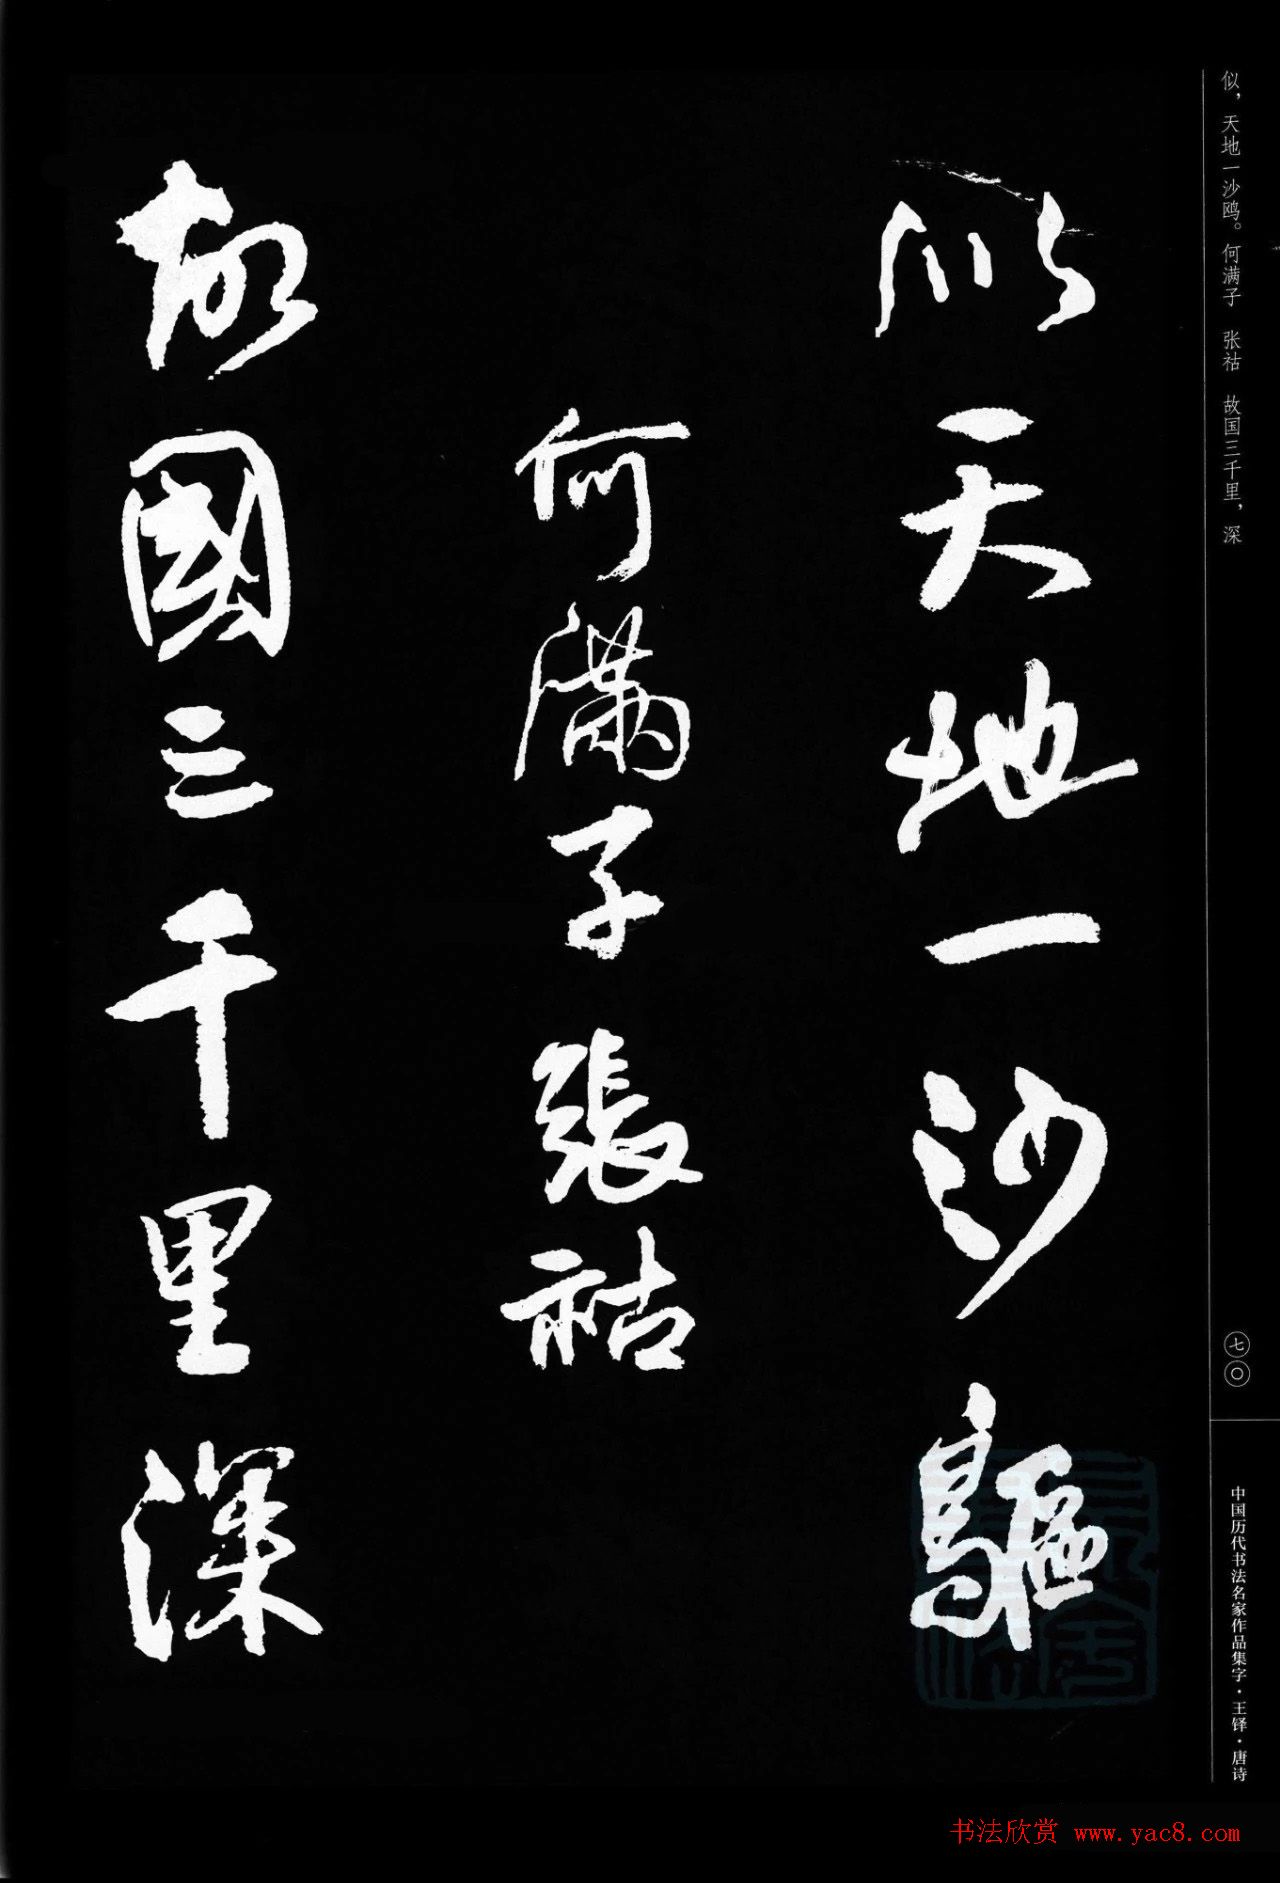 似，天地一沙鸥。何满子　张祜　故国三千里，深
七〇
中国历代书法名家作品集字·王铎·唐诗
似天地一沙驅
何滿子張祜
故國三千里深
书法欣赏 www.yac8.com